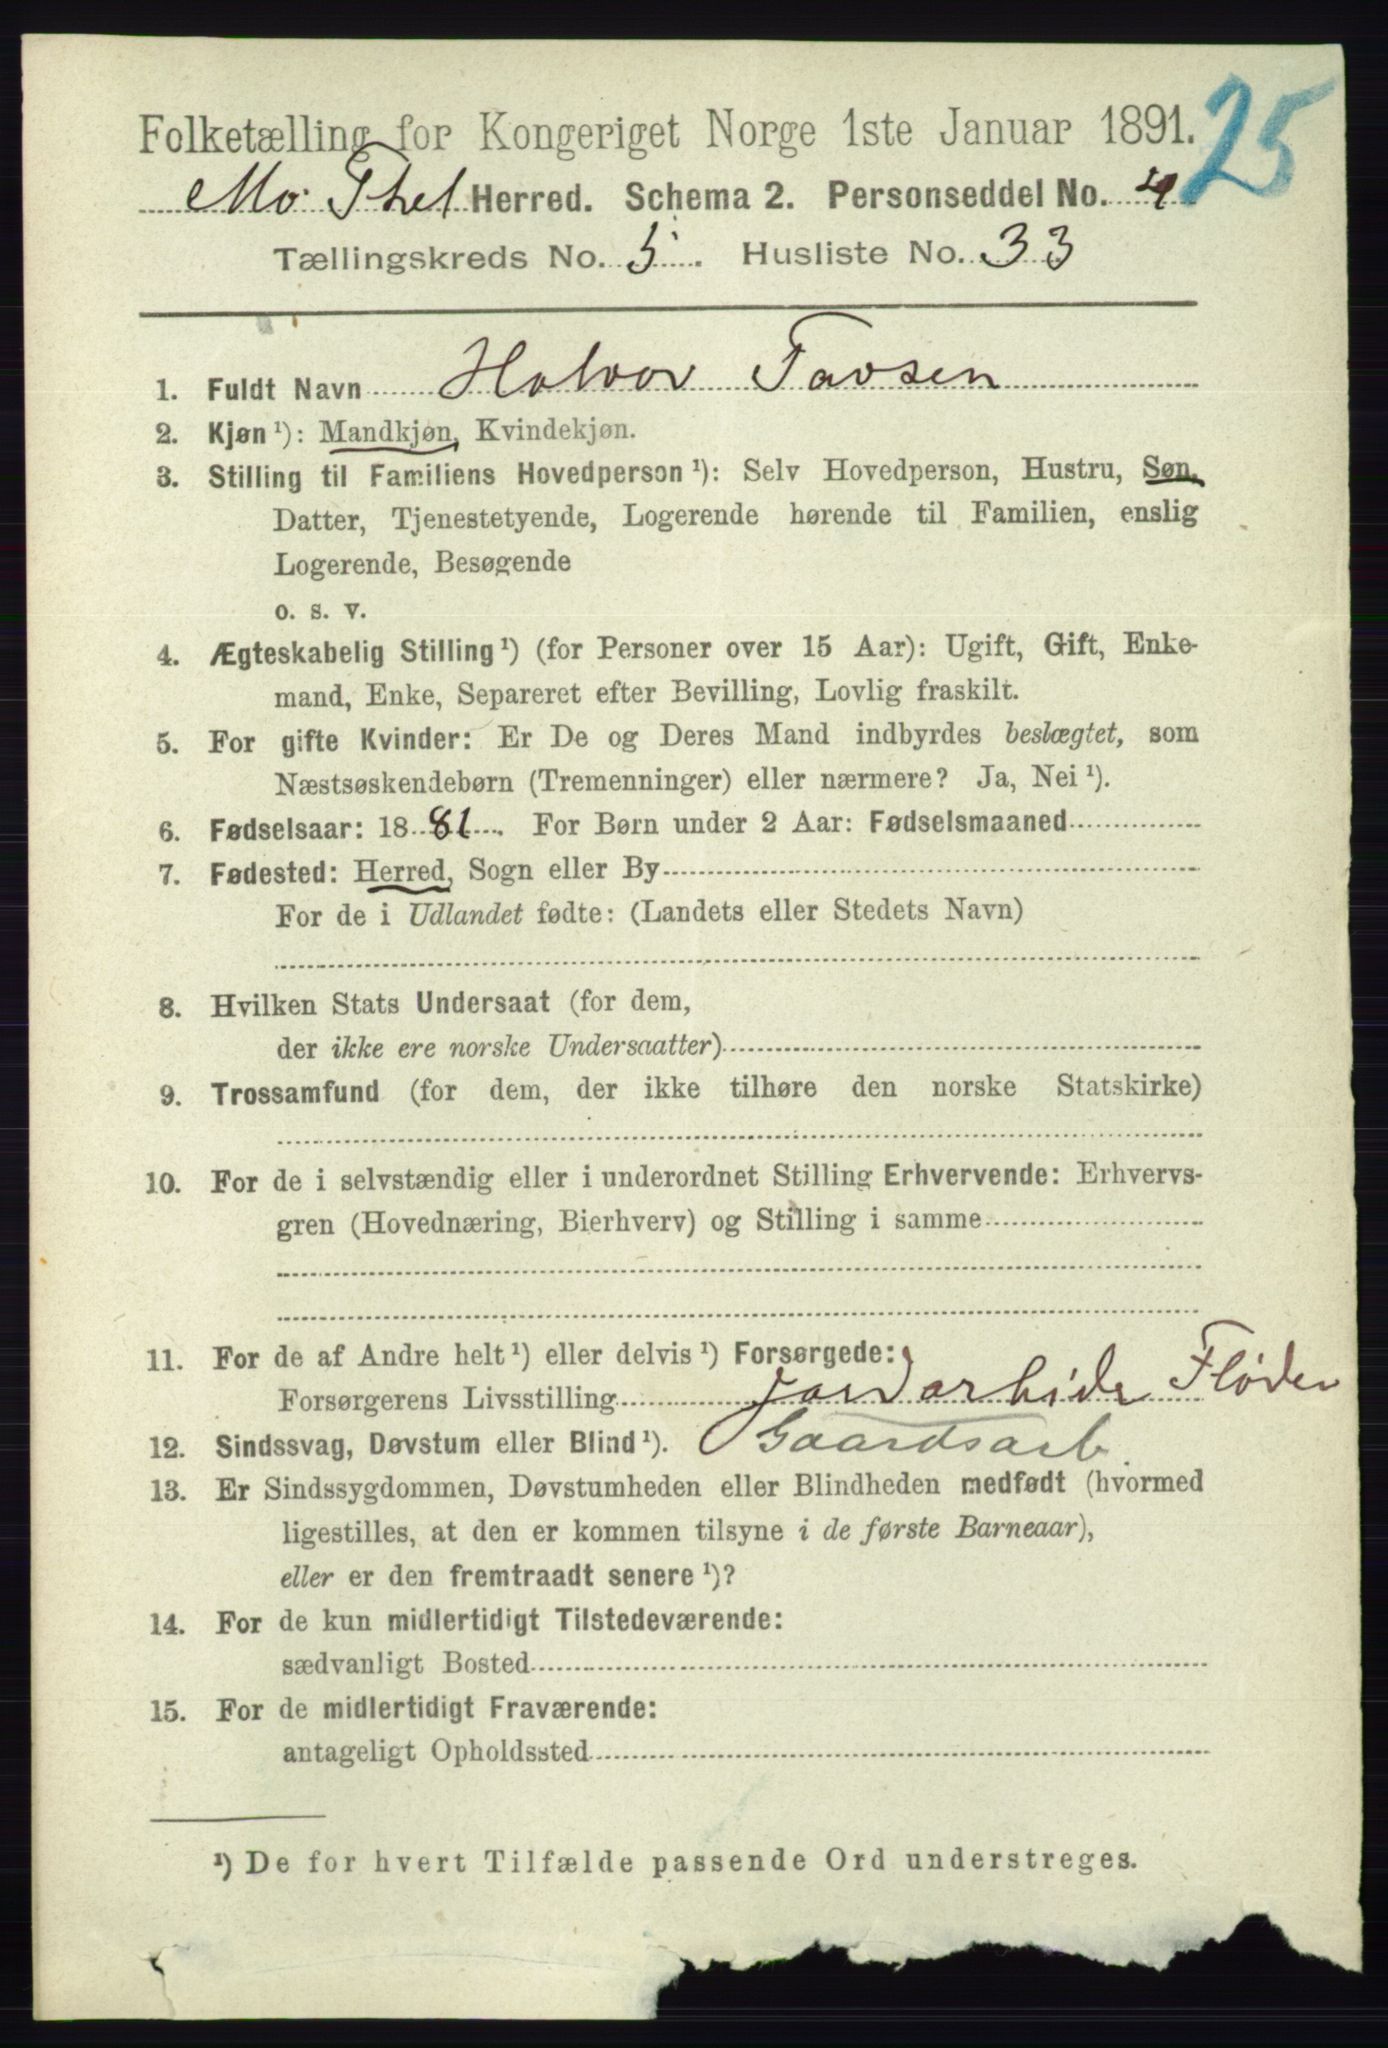 25
Folketælling for Kongeriget Norge 1ste Januar 1891.
Mo Thel Herred. Schema 2. Personseddel No.
Tællingskreds No. 5. Husliste No. 33
1. Fuldt Navn Halvor Tavsen
2. Kjøn ¹): Mandkjøn, Kvindekjøn.
3. Stilling til Familiens Hovedperson ¹): Selv Hovedperson, Hustru, Søn,
Datter, Tjenestetyende, Logerende hørende til Familien, enslig
Logerende, Besøgende
o. s. v.
4. Ægteskabelig Stilling ¹) (for Personer over 15 Aar): Ugift, Gift, Enke-
mand, Enke, Separeret efter Bevilling, Lovlig fraskilt.
5. For gifte Kvinder: Er De og Deres Mand indbyrdes beslægtet, som
Næstsøskendebørn (Tremenninger) eller nærmere? Ja, Nei ¹).
6. Fødselsaar: 1881. For Børn under 2 Aar: Fødselsmaaned
7. Fødested: Herred, Sogn eller By
For de i Udlandet fødte: (Landets eller Stedets Navn)
8. Hvilken Stats Undersaat (for dem,
der ikke ere norske Undersaatter)
9. Trossamfund (for dem, der ikke tilhøre den norske Statskirke)
10. For de i selvstændig eller i underordnet Stilling Erhvervende: Erhvervs-
gren (Hovednæring, Bierhverv) og Stilling i samme
11. For de af Andre helt ¹) eller delvis ¹) Forsørgede:
Forsørgerens Livsstilling Jordarbeide Fløder
12. Sindssvag, Døvstum eller Blind ¹). Gaardsarb
13. Er Sindssygdommen, Døvstumheden eller Blindheden medfødt (hvormed
ligestilles, at den er kommen tilsyne i de første Barneaar),
eller er den fremtraadt senere ¹)?
14. For de kun midlertidigt Tilstedeværende:
sædvanligt Bosted
15. For de midlertidigt Fraværende:
antageligt Opholdssted
¹) De for hvert Tilfælde passende Ord understreges.